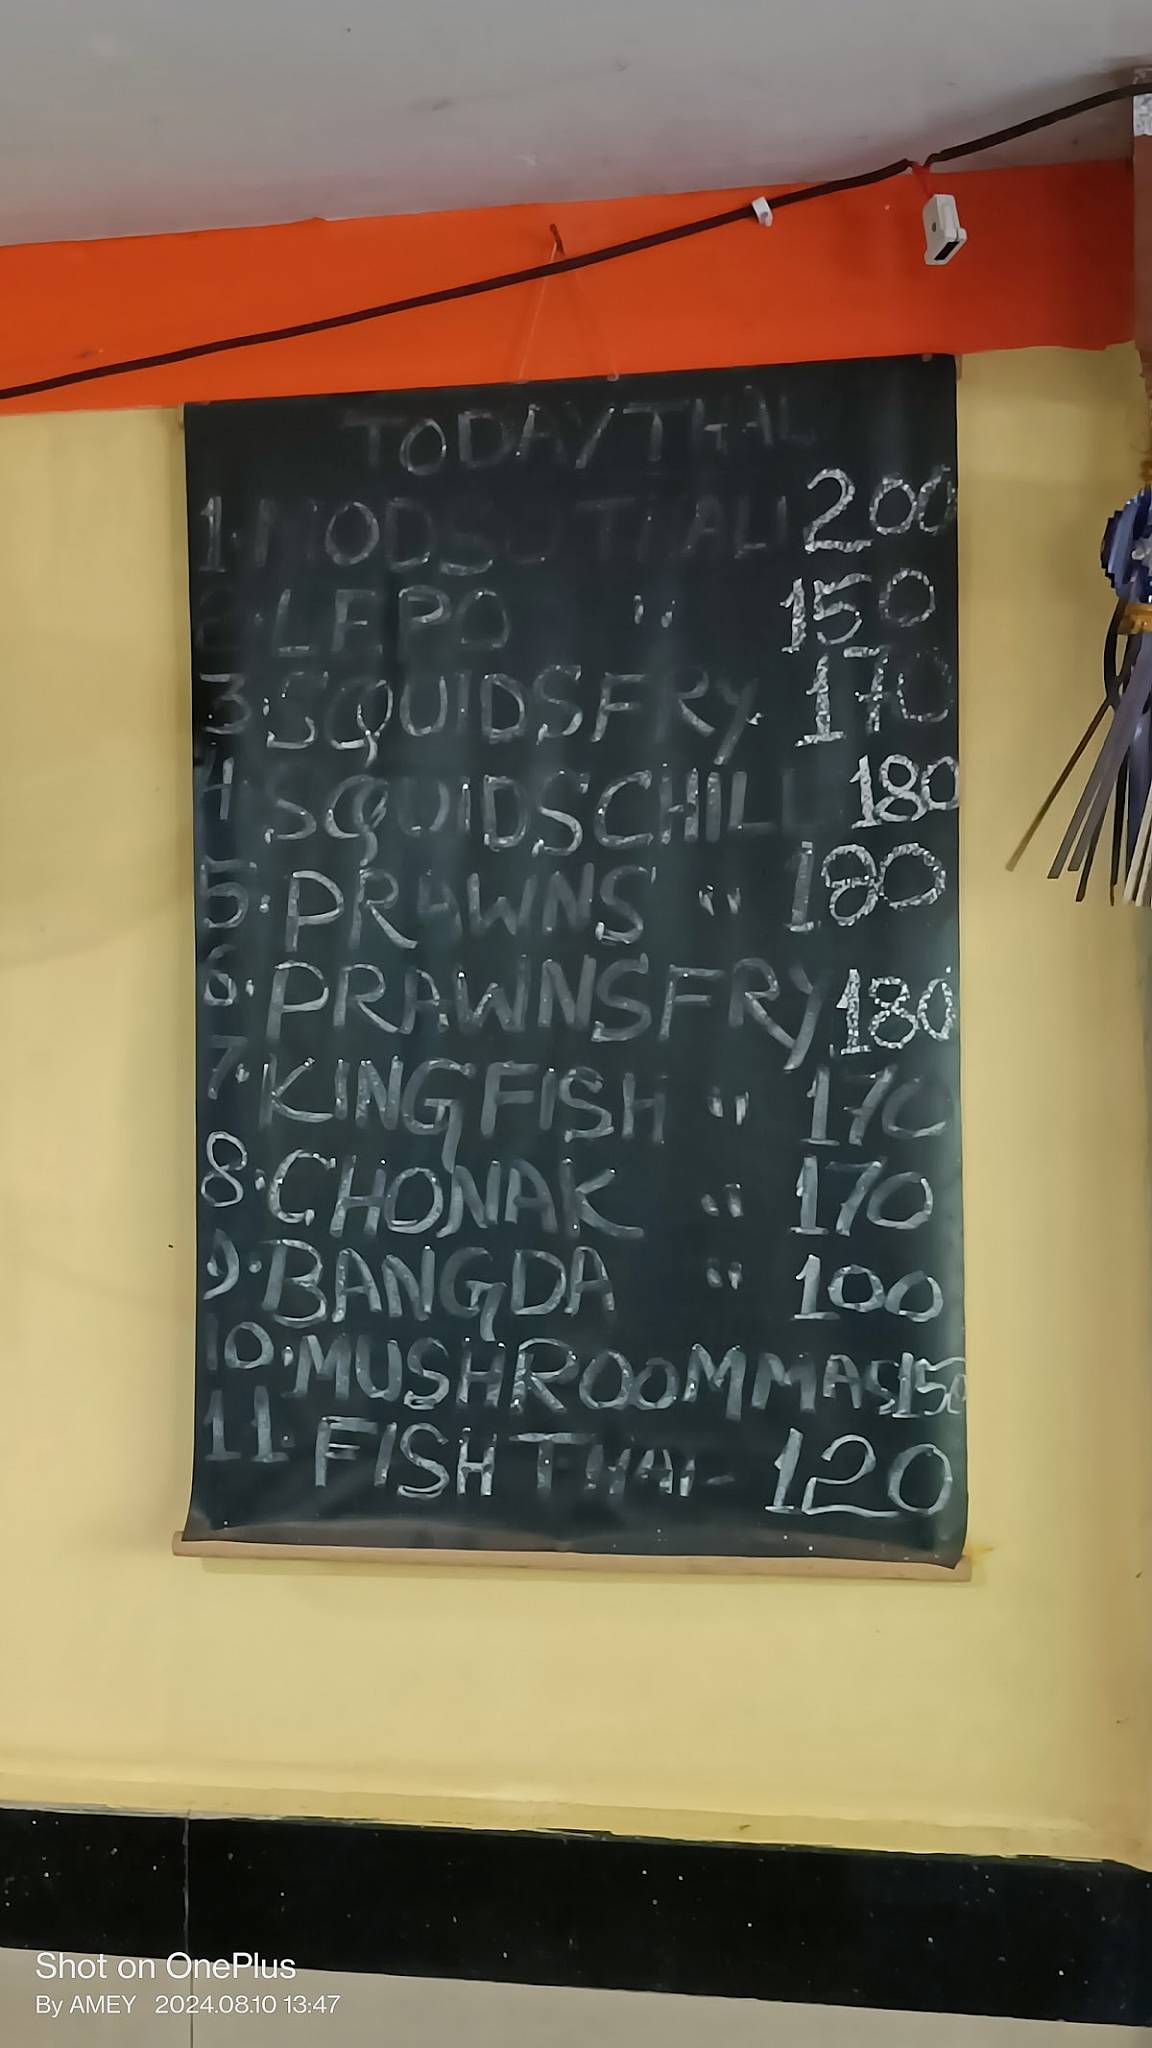 TODAY THAL
1. MODSO THALI 200
2. LEPO " 150
3. SQUIDS FRY 170
4 SQUIDS CHILLI 180
5. PRAWNS " 180
6. PRAWNS FRY 180
7. KINGFISH " 170
8. CHONAK " 170
9. BANGDA " 100
10. MUSHROOM MAS 150
11. FISH THALI 120
Shot on OnePlus
By AMEY 2024.08.10 13:47